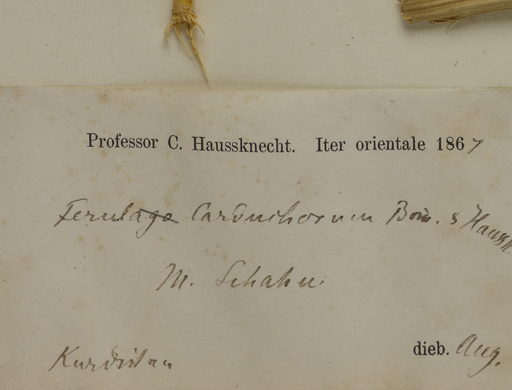 Professor C. Haussknecht. Iter orientale 1867
Ferulago Carduchorum Bois. & Haussk
M. Schahu
Kurdistan
dieb. Aug.